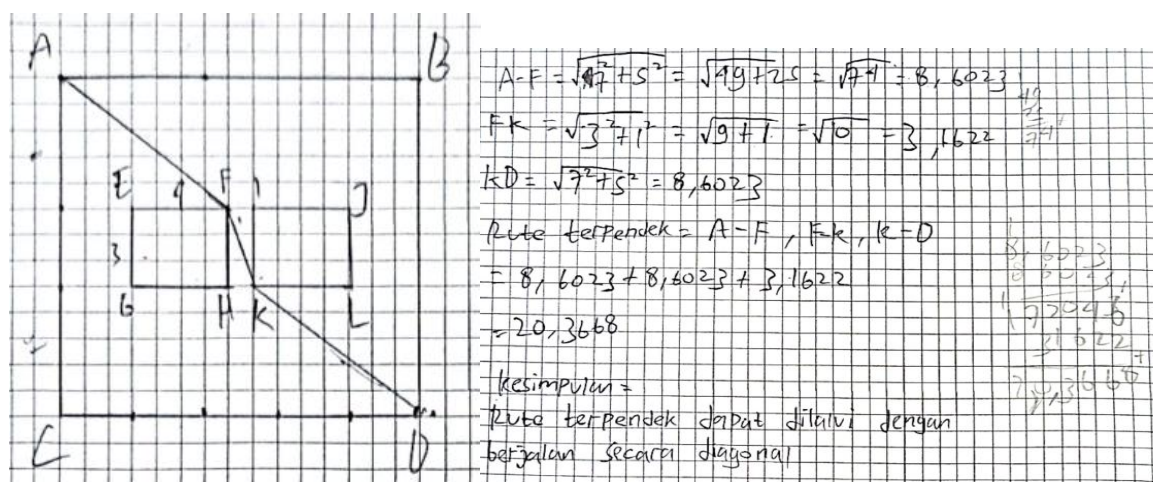 A B
E 4 F 1 J
3
G H K L
C D
A-F = √7²+5² = √49+25 = √74 = 8,6023
FK = √3²+1² = √9+1 = √10 = 3,1622
KD = √7²+5² = 8,6023
Rute terpendek = A-F, F-k, k-D
= 8,6023 + 8,6023 + 3,1622
= 20,3668
kesimpulan =
Rute terpendek dapat dilalui dengan
berjalan secara diagonal